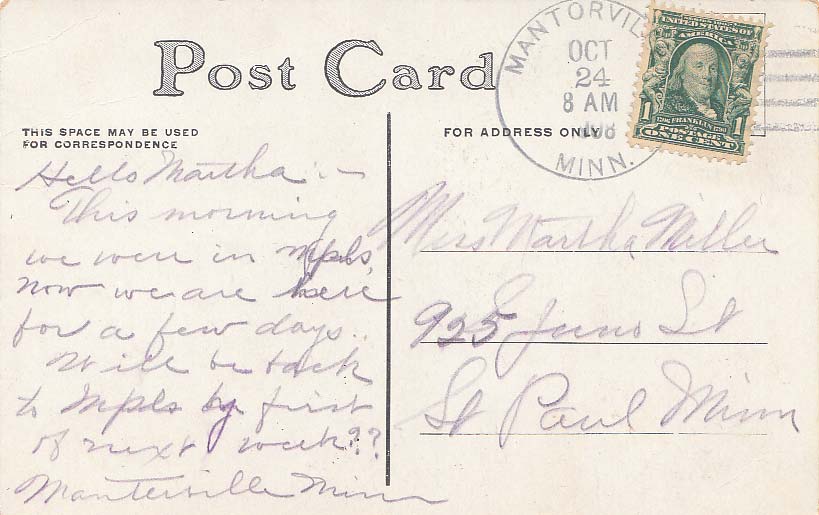 Post Card
THIS SPACE MAY BE USED
FOR CORRESPONDENCE
Hello Martha:—
This morning
we were in Mpls,
now we are here
for a few days.
Will be back
to Mpls by first
of next week??
Manterville Minn
FOR ADDRESS ONLY
MANTORVIL
OCT
24
8 AM
MINN.
UNITED STATES OF
AMERICA
1706 FRANKLIN 1790
1 POSTAGE 1
ONE CENT
Miss Martha Miller
925 Juno St
St Paul Minn